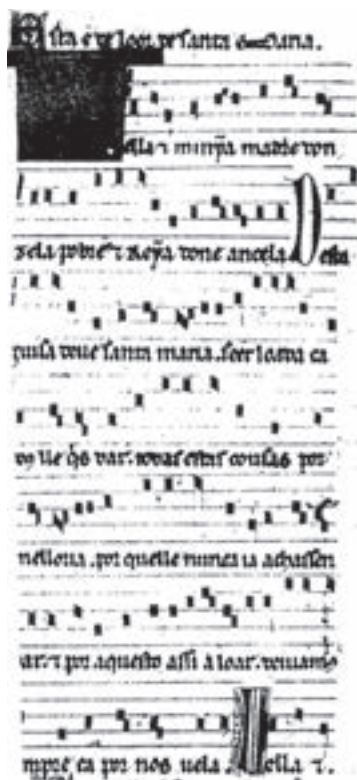 sta e de loor de santa
ella ⁊ minỹa madre don
zela pobre ⁊ Reỹa done ancela Desta
guisa deue santa maria. seer loada ca
lle q̇s dar. todas estas cousas por
melloria. por quelle nunca ia achassen
⁊ por aquesto assi a loar. deuiamo
mpre ca por nos uela. Vella ⁊.